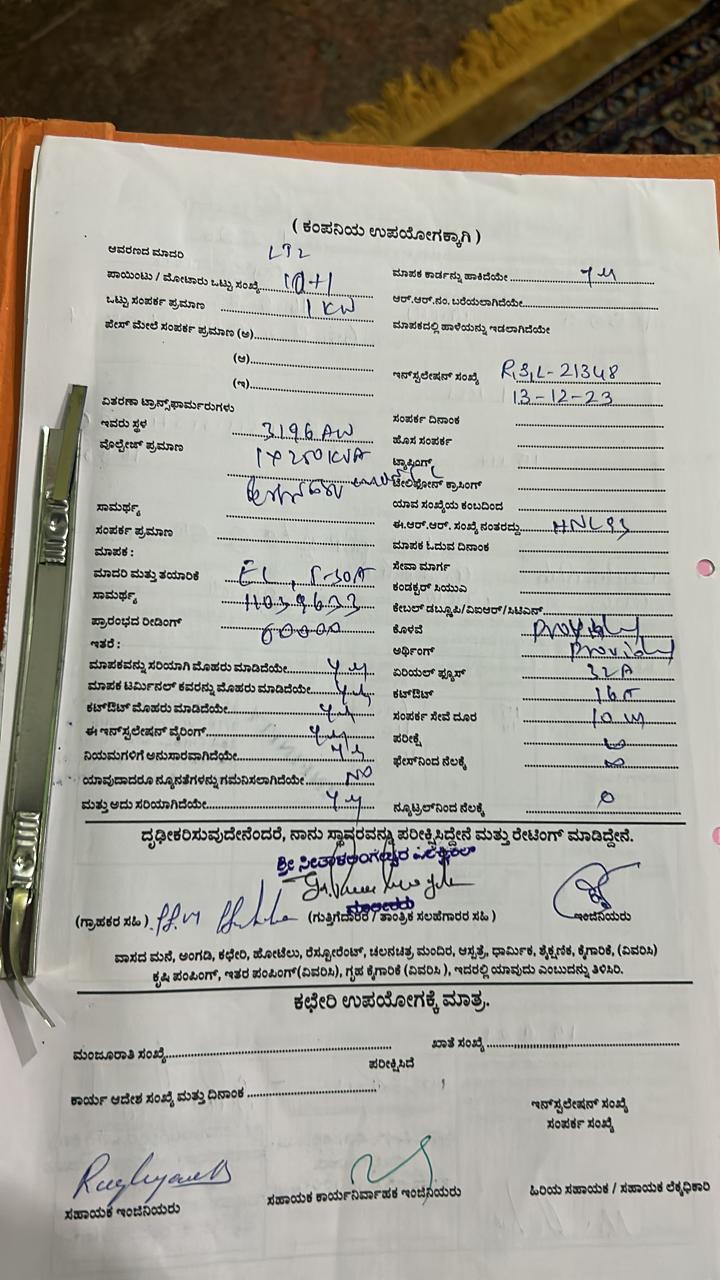 ( ಕಂಪನಿಯ ಉಪಯೋಗಕ್ಕಾಗಿ )
ಆವರಣದ ಮಾದರಿ LT2
ಪಾಯಿಂಟು / ಮೋಟಾರು ಒಟ್ಟು ಸಂಖ್ಯೆ 10+1
ಮಾಪಕ ಕಾರ್ಡನ್ನು ಹಾಕಿದೆಯೇ
ಒಟ್ಟು ಸಂಪರ್ಕ ಪ್ರಮಾಣ 1 KW
ಆರ್.ಆರ್.ನಂ. ಬರೆಯಲಾಗಿದೆಯೇ
ಪೇಸ್ ಮೇಲೆ ಸಂಪರ್ಕ ಪ್ರಮಾಣ (ಅ)
ಮಾಪಕದಲ್ಲಿ ಹಾಳೆಯನ್ನು ಇಡಲಾಗಿದೆಯೇ
(ಆ)
(ಇ)
ಇನ್‌ಸ್ಟಲೇಷನ್ ಸಂಖ್ಯೆ R,S,L-21348
13-12-23
ವಿತರಣಾ ಟ್ರಾನ್ಸ್‌ಫಾರ್ಮರುಗಳು
ಸಂಪರ್ಕ ದಿನಾಂಕ
ಇವರು ಸ್ಥಳ
ಹೊಸ ಸಂಪರ್ಕ
ವೊಲ್ಟೇಜ್ ಪ್ರಮಾಣ 1X250KVA
ಟ್ಯಾಪ್ಪಿಂಗ್
ಟೆಲಿಫೋನ್ ಕ್ರಾಸಿಂಗ್
ಸಾಮರ್ಥ್ಯ
ಯಾವ ಸಂಖ್ಯೆಯ ಕಂಬದಿಂದ
ಸಂಪರ್ಕ ಪ್ರಮಾಣ
ಈ.ಆರ್.ಆರ್. ಸಂಖ್ಯೆ ನಂತರದ್ದು HNL93
ಮಾಪಕ :
ಮಾಪಕ ಓದುವ ದಿನಾಂಕ
ಮಾದರಿ ಮತ್ತು ತಯಾರಿಕೆ
ಸೇವಾ ಮಾರ್ಗ
ಸಾಮರ್ಥ್ಯ 11039633
ಕಂಡಕ್ಟರ್ ಸಿಯುಎ
ಪ್ರಾರಂಭದ ರೀಡಿಂಗ್ 00000
ಕೇಬಲ್ ಡಬ್ಲ್ಯೂಪಿ/ವಿಐಆರ್/ಸಿಟಿಎನ್
ಇತರೆ :
ಕೊಳವೆ
ಅರ್ಥಿಂಗ್
ಮಾಪಕವನ್ನು ಸರಿಯಾಗಿ ಮೊಹರು ಮಾಡಿದೆಯೇ yes
ಏರಿಯಲ್ ಫ್ಯೂಸ್ 32A
ಮಾಪಕ ಟರ್ಮಿನಲ್ ಕವರನ್ನು ಮೊಹರು ಮಾಡಿದೆಯೇ yes
ಕಟ್‌ಔಟ್
ಕಟ್‌ಔಟ್ ಮೊಹರು ಮಾಡಿದೆಯೇ yes
ಸಂಪರ್ಕ ಸೇವೆ ದೂರ 10 m
ಈ ಇನ್‌ಸ್ಟಲೇಷನ್ ವೈರಿಂಗ್ yes
ಪರೀಕ್ಷೆ ∞
ನಿಯಮಗಳಿಗೆ ಅನುಸಾರವಾಗಿದೆಯೇ yes
ಫೇಸ್‌ನಿಂದ ನೆಲಕ್ಕೆ ∞
ಯಾವುದಾದರೂ ನ್ಯೂನತೆಗಳನ್ನು ಗಮನಿಸಲಾಗಿದೆಯೇ NO
ಮತ್ತು ಅದು ಸರಿಯಾಗಿದೆಯೇ yes
ನ್ಯೂಟ್ರಲ್‌ನಿಂದ ನೆಲಕ್ಕೆ 0
ದೃಢೀಕರಿಸುವುದೇನೆಂದರೆ, ನಾನು ಸ್ಥಾವರವನ್ನು ಪರೀಕ್ಷಿಸಿದ್ದೇನೆ ಮತ್ತು ರೇಟಿಂಗ್ ಮಾಡಿದ್ದೇನೆ.
ಮಾಲೀಕರು
(ಗ್ರಾಹಕರ ಸಹಿ)
(ಗುತ್ತಿಗೆದಾರರ / ತಾಂತ್ರಿಕ ಸಲಹೆಗಾರರ ಸಹಿ)
ಇಂಜಿನಿಯರು
ವಾಸದ ಮನೆ, ಅಂಗಡಿ, ಕಛೇರಿ, ಹೋಟೆಲು, ರೆಸ್ಟೋರೆಂಟ್, ಚಲನಚಿತ್ರ ಮಂದಿರ, ಆಸ್ಪತ್ರೆ, ಧಾರ್ಮಿಕ, ಶೈಕ್ಷಣಿಕ, ಕೈಗಾರಿಕೆ, (ವಿವರಿಸಿ)
ಕೃಷಿ ಪಂಪಿಂಗ್, ಇತರ ಪಂಪಿಂಗ್(ವಿವರಿಸಿ), ಗೃಹ ಕೈಗಾರಿಕೆ (ವಿವರಿಸಿ ), ಇದರಲ್ಲಿ ಯಾವುದು ಎಂಬುದನ್ನು ತಿಳಿಸಿರಿ.
ಕಛೇರಿ ಉಪಯೋಗಕ್ಕೆ ಮಾತ್ರ.
ಮಂಜೂರಾತಿ ಸಂಖ್ಯೆ
ಖಾತೆ ಸಂಖ್ಯೆ
ಪರೀಕ್ಷಿಸಿದೆ
ಕಾರ್ಯ ಆದೇಶ ಸಂಖ್ಯೆ ಮತ್ತು ದಿನಾಂಕ
ಇನ್‌ಸ್ಟಲೇಷನ್ ಸಂಖ್ಯೆ
ಸಂಪರ್ಕ ಸಂಖ್ಯೆ
ಸಹಾಯಕ ಇಂಜಿನಿಯರು
ಸಹಾಯಕ ಕಾರ್ಯನಿರ್ವಾಹಕ ಇಂಜಿನಿಯರು
ಹಿರಿಯ ಸಹಾಯಕ / ಸಹಾಯಕ ಲೆಕ್ಕಧಿಕಾರಿ